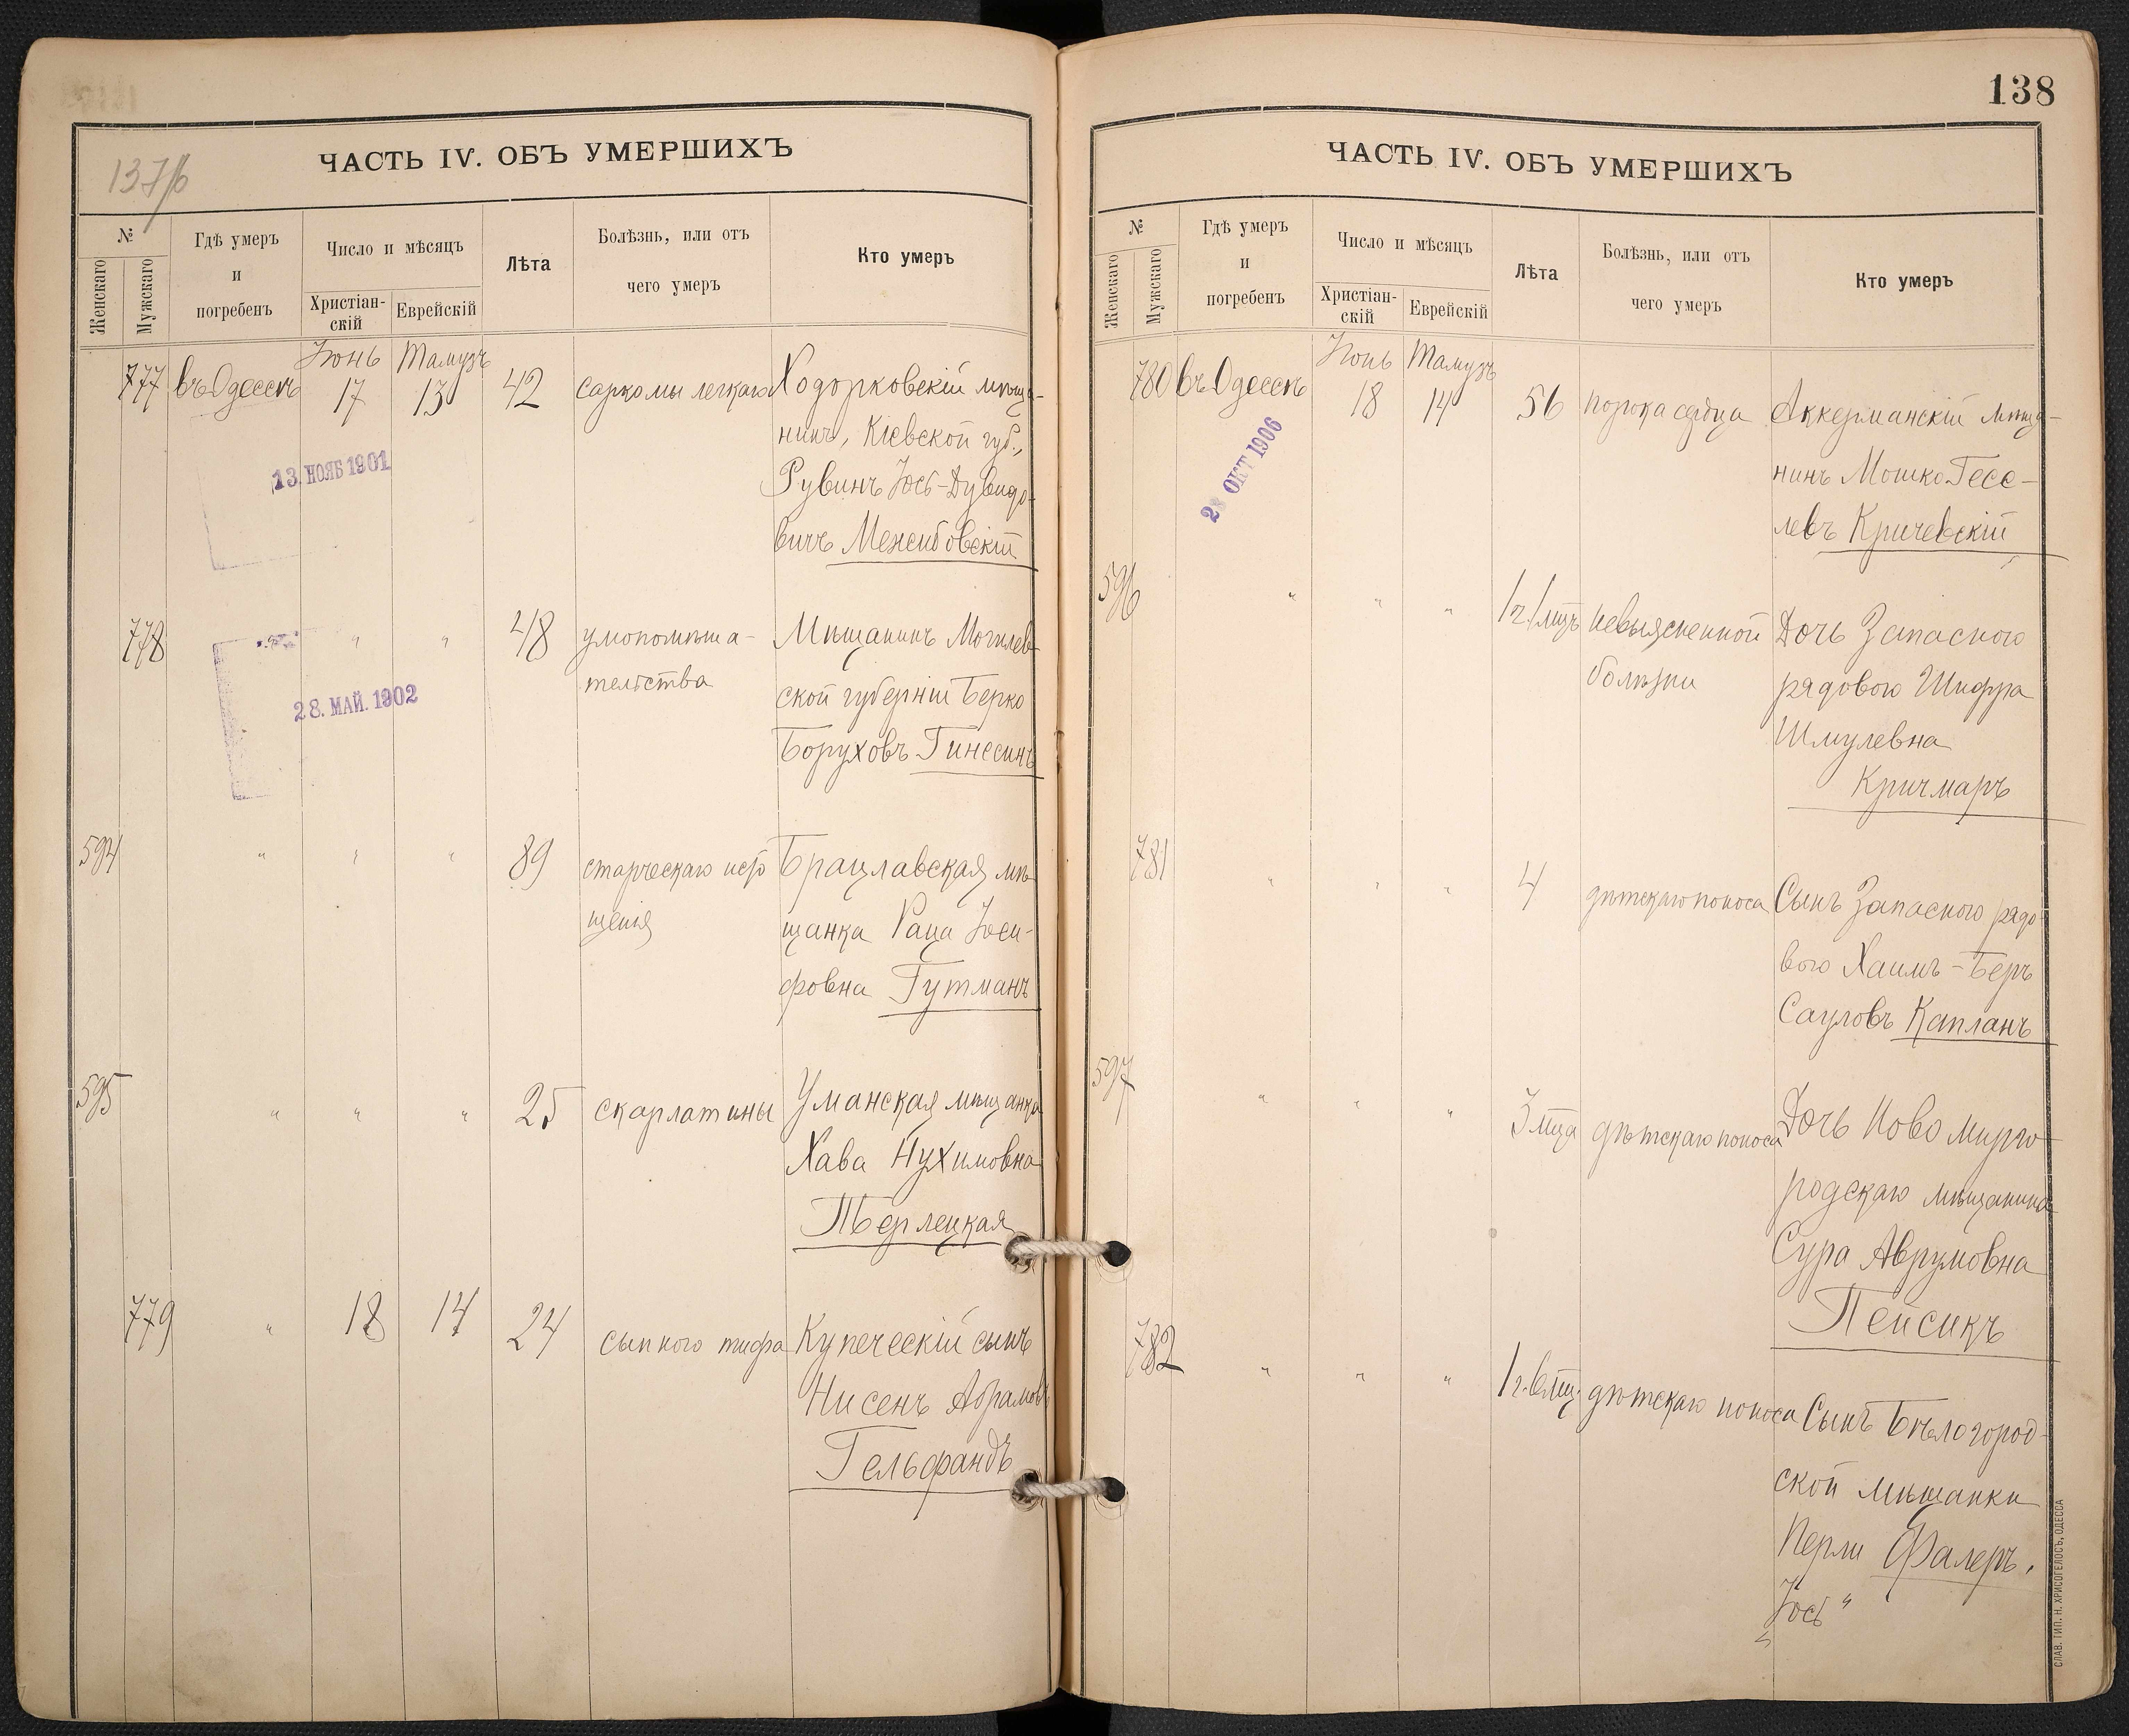 137/б
ЧАСТЬ IV. ОБЪ УМЕРШИХЪ
№
Женскаго
Мужскаго
Гдѣ умеръ
и
погребенъ
Число и мѣсяцъ
Христіан-
скій
Еврейскій
Лѣта
Болѣзнь, или отъ
чего умеръ
Кто умеръ
Іюнь Тамузъ
777 въ Одессѣ 17 13 42 саркомы легкаго Ходорковскій мѣща-
нинъ, Кіевской губ.,
Рувинъ Іось-Дувидо-
вичъ Менсибовскій
13. НОЯБ 1901
778 " " " 48 умопомѣша- Мѣщанинъ Могилев-
тельства ской губерніи Берко
Боруховъ Гинесинъ
28. МАЙ. 1902
594 " " " 89 старческаго исто Брацлавская мѣ-
щенія щанка Раца Іоси-
фовна Гутманъ
595 " " " 25 скарлатины Уманская мѣщанка
Хава Нухимовна
Терлецкая
779 " 18 14 24 сыпного тифа Купеческій сынъ
Нисенъ Абрамовъ
Гельфандъ
138
ЧАСТЬ IV. ОБЪ УМЕРШИХЪ
№
Женскаго
Мужскаго
Гдѣ умеръ
и
погребенъ
Число и мѣсяцъ
Христіан-
скій
Еврейскій
Лѣта
Болѣзнь, или отъ
чего умеръ
Кто умеръ
Іюнь Тамузъ
780 въ Одессѣ 18 14 56 порока сердца Аккерманскій мѣща-
нинъ Мошко Гесе-
левъ Кричевскій
28 ОКТ 1906
596 " " " 1 г. 1 мцъ невыясненной Дочь Запасного
болѣзни рядового Шифра
Шмулевна
Кричмаръ
781 " " " 4 дѣтскаго поноса Сынъ Запасного рядо-
вого Хаимъ-Беръ
Сауловъ Капланъ
597 " " " 3 мца дѣтскаго поноса Дочь Ново мирго-
родскаго мѣщанина
Сура Аврумовна
Пейсикъ
782 " " " 1 г. 6 мц. дѣтскаго поноса Сынъ Бѣлогород-
ской мѣщанки
Перли Фалеръ,
Іось "
СЛАВ. ТИП. Н. ХРИСОГЕЛОСЪ, ОДЕССА